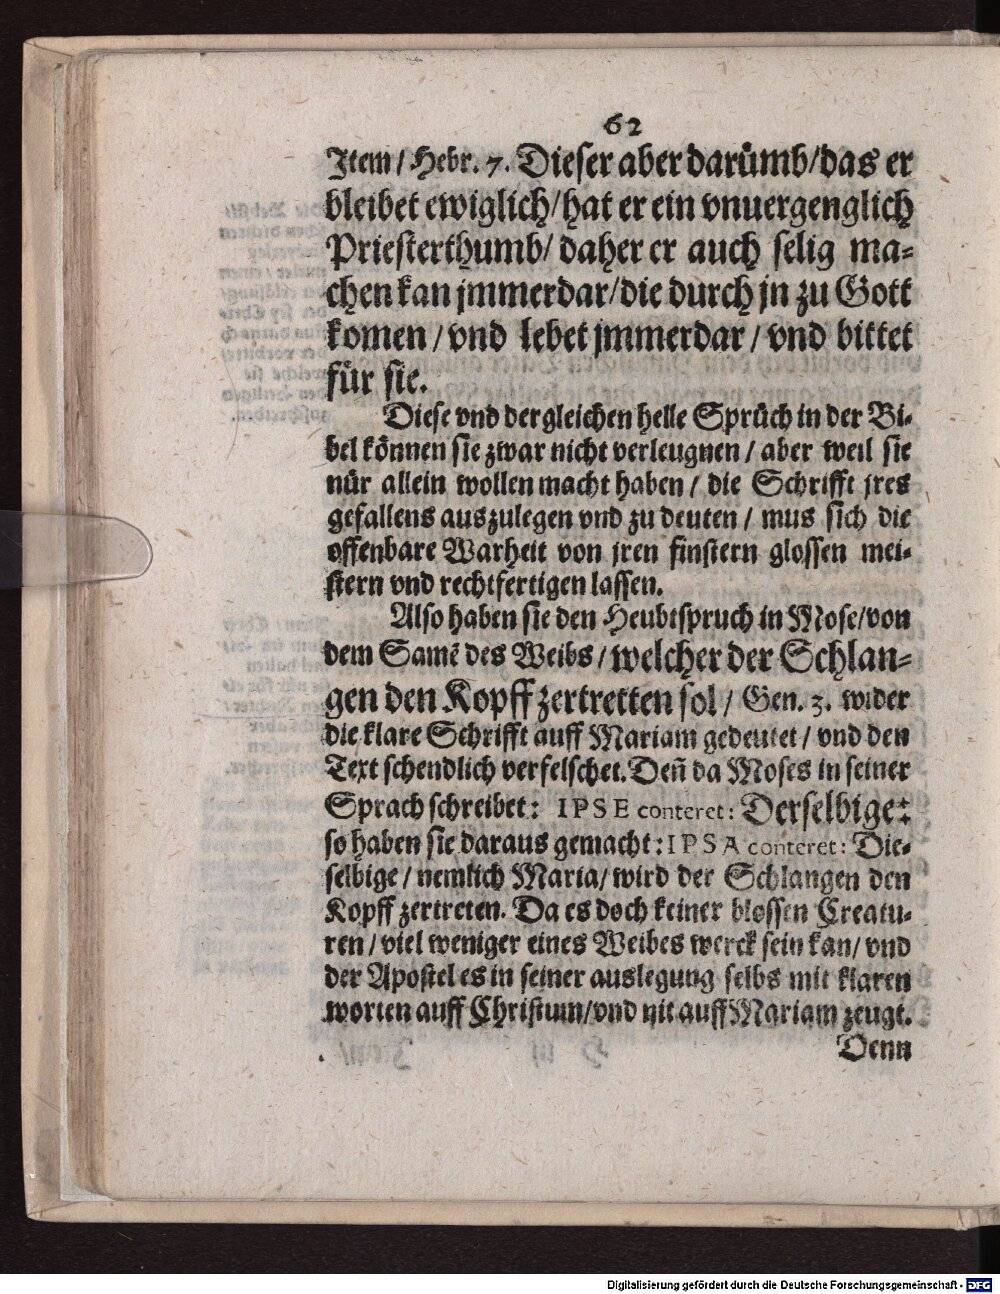 62
Item / Hebr. 7. Dieser aber darümb / das er
bleibet ewiglich / hat er ein vnuergenglich
Priesterthumb / daher er auch selig ma=
chen kan jmmerdar / die durch jn zu Gott
komen / vnd lebet jmmerdar / vnd bittet
für sie.
Diese vnd dergleichen helle Sprüch in der Bi=
bel können sie zwar nicht verleugnen / aber weil sie
nür allein wollen macht haben / die Schrifft jres
gefallens auszulegen vnd zu deuten / mus sich die
offenbare Warheit von jren finstern glossen mei=
stern vnd rechtfertigen lassen.
Also haben sie den Heubtspruch in Mose / von
dem Samē des Weibs / welcher der Schlan=
gen den Kopff zertretten sol / Gen. 3. wider
die klare Schrifft auff Mariam gedeutet / vnd den
Text schendlich verfelschet. Deñ da Moses in seiner
Sprach schreibet: IPSE conteret: Derselbige:
so haben sie daraus gemacht: IPSA conteret: Die=
selbige / nemlich Maria / wird der Schlangen den
Kopff zertreten. Da es doch keiner blossen Creatu=
ren / viel weniger eines Weibes werck sein kan / vnd
der Apostel es in seiner auslegung selbs mit klaren
worten auff Christum / vnd nit auff Mariam zeugt.
Denn
Digitalisierung gefördert durch die Deutsche Forschungsgemeinschaft - DFG